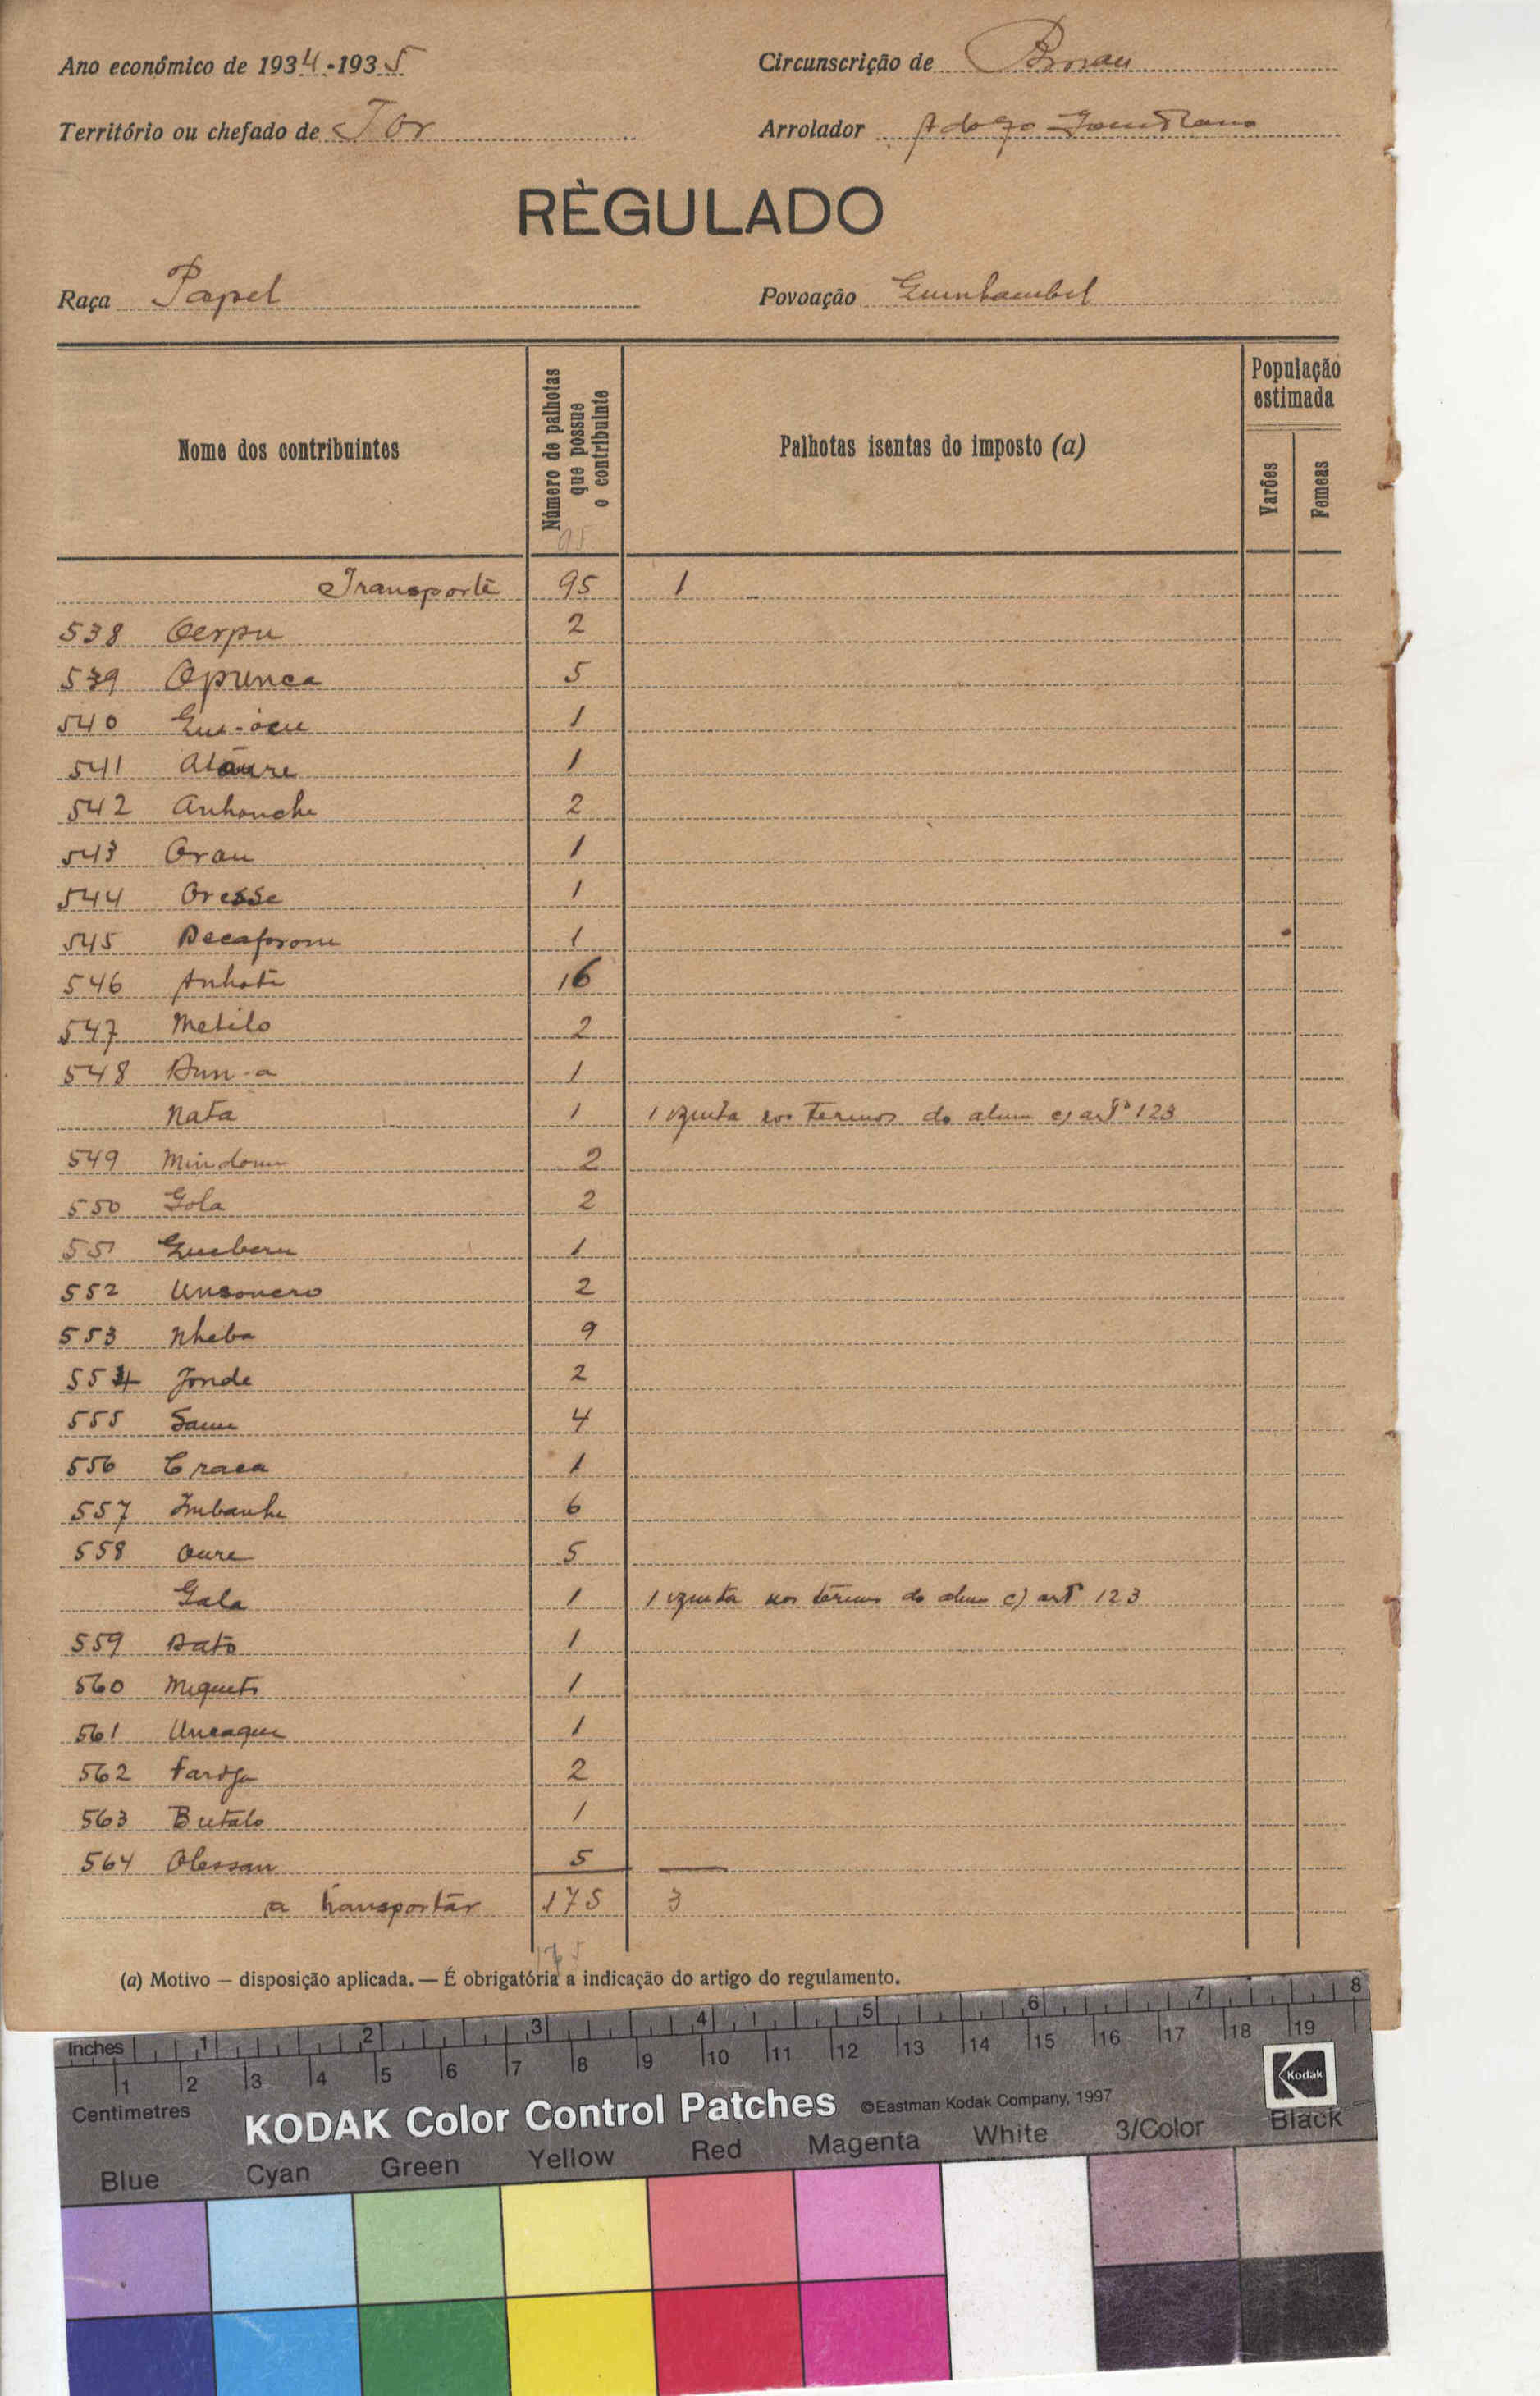 Ano económico de 1934-1935
Circunscrição de
Território ou chefado de Tor
Arrolador
RÈGULADO
Raça Papel
Povoação
Nome dos contribuintes
Número de palhotas que possue o contribuinte
Palhotas isentas do imposto (a)
População estimada
Varões
Femeas
95
Transporte 95 1
538 Oerpu 2
539 Opunca 5
540 1
541 1
542 Anhouche 2
543 Orau 1
544 Oresse 1
545 1
546 Anhoti 16
547 Metilo 2
548 Dun-a 1
Nata 1 1 nos termos da c) artº 123
549 2
550 Gola 2
551 1
552 Unsonero 2
553 Nheba 9
554 Jonde 2
555 4
556 Craca 1
557 Imbanhe 6
558 Oure 5
Gala 1 1 nos termos da c) artº 123
559 Dato 1
560 1
561 1
562 2
563 Butalo 1
564 Olessau 5
a transportar 175 3
175
(a) Motivo — disposição aplicada. — É obrigatória a indicação do artigo do regulamento.
Inches 1 2 3 4 5 6 7 8
1 2 3 4 5 6 7 8 9 10 11 12 13 14 15 16 17 18 19
Centimetres
KODAK Color Control Patches ©Eastman Kodak Company, 1997
Kodak
Blue Cyan Green Yellow Red Magenta White 3/Color Black